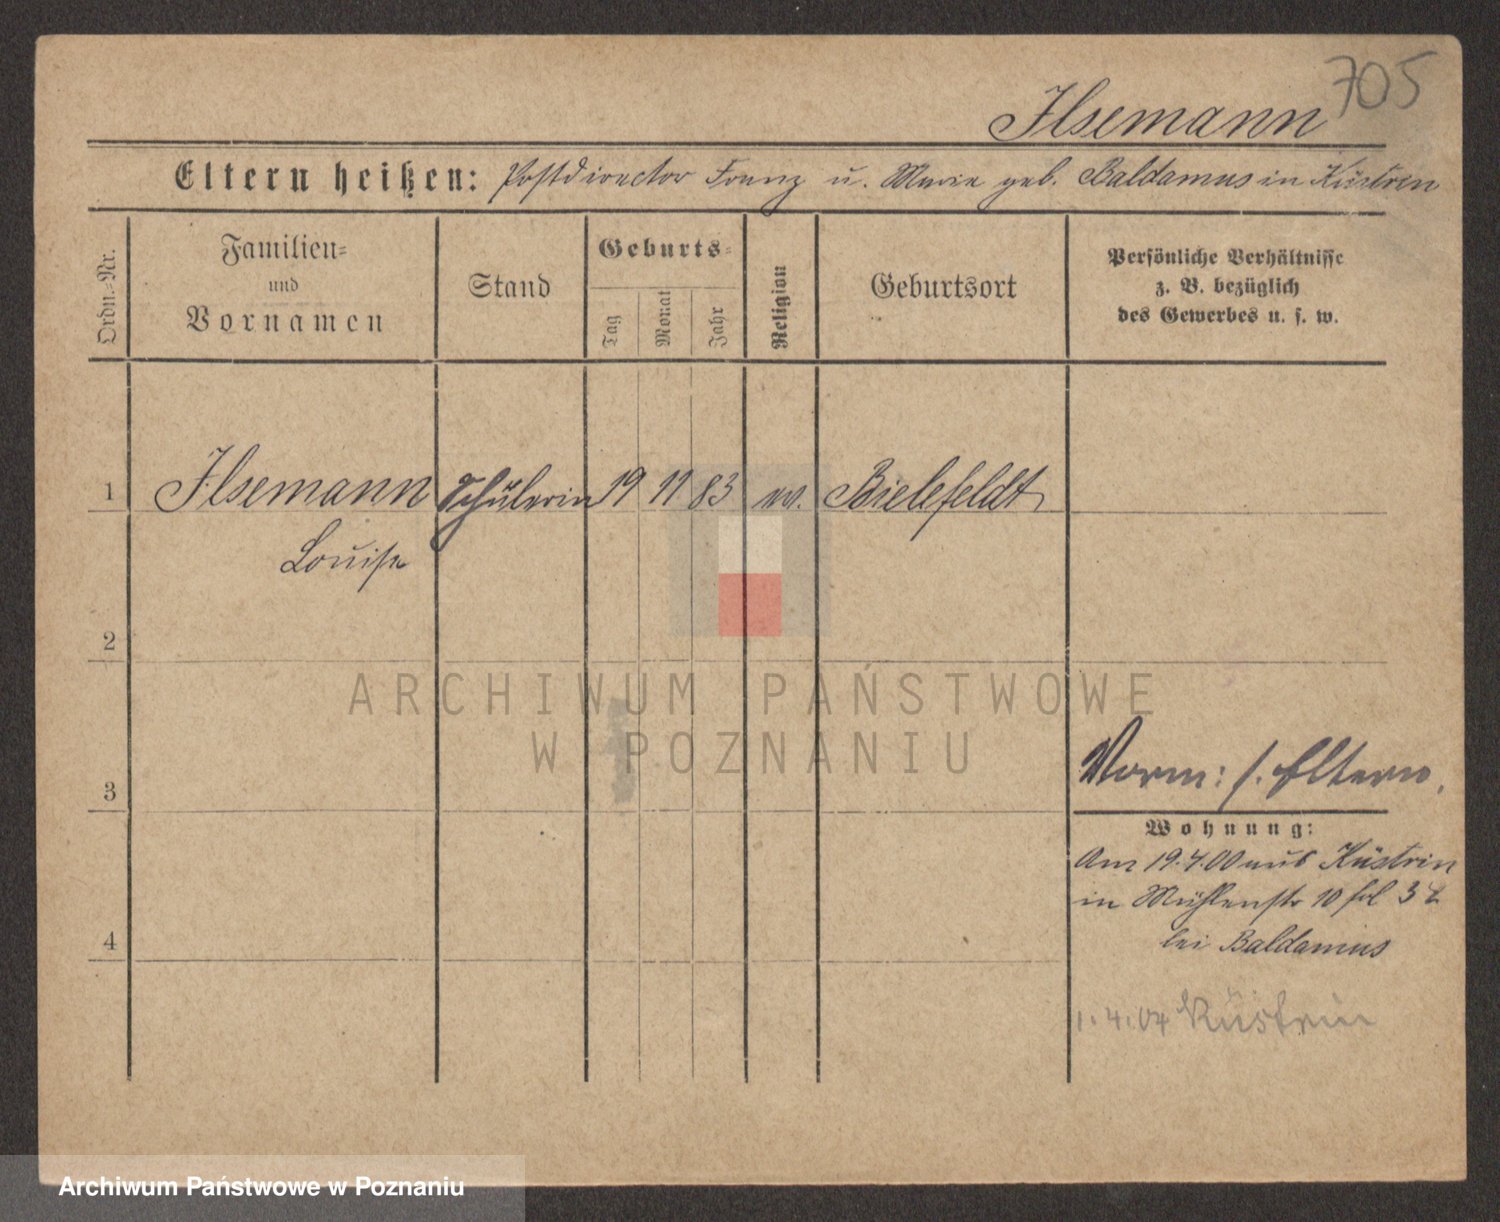 705
Ilsemann
Eltern heißen: Postdirector Franz u. Marie geb. Baldamus in Küstrin
Ordn.-Nr.
Familien-
und
Vornamen
Stand
Geburts-
Tag
Monat
Jahr
Religion
Geburtsort
Persönliche Verhältnisse
z. B. bezüglich
des Gewerbes u. s. w.
1 Ilsemann Schülerin 19 11 83 ev. Bielefeldt
Louise
2
ARCHIWUM PAŃSTWOWE
W POZNANIU
3
Vorm: s. Eltern.
Wohnung:
Am 19.4.00 aus Küstrin
in Mühlenstr 10
bei Baldamus
4
1.4.04 Küstrin
Archiwum Państwowe w Poznaniu